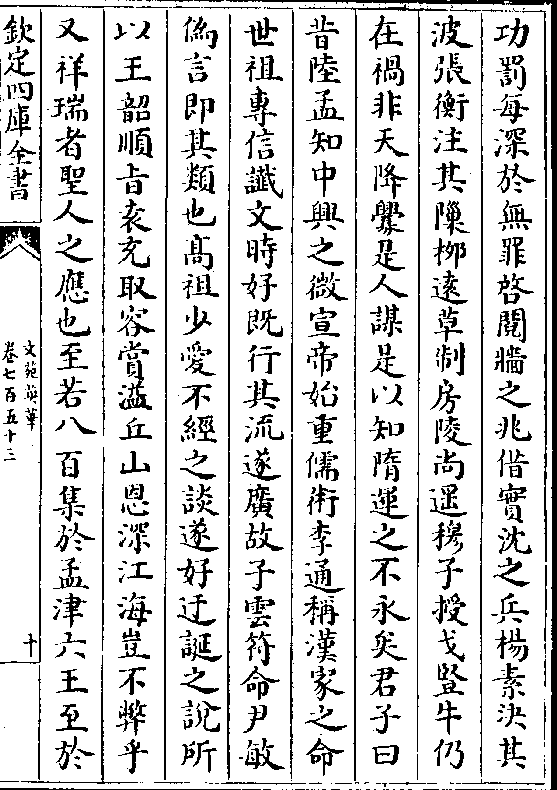 功罰每深於無罪啓鬩牆之兆借實沈之兵楊素決其
波張衡注其隟栁逺草制房陵尚遥穆子授戈豎牛仍
在禍非天降釁是人謀是以知隋運之不永矣君子曰
昔陸孟知中興之微宣帝始重儒術李通稱漢家之命
世祖專信讖文時好既行其流遂廣故子雲符命尹敏
僞言即其類也髙祖少愛不經之談遂好迂誕之說所
以王韶順㫖袁充取容賞溢丘山恩深江海豈不弊乎
又祥瑞者聖人之應也至若八百集於孟津六王至於
欽定四庫全書
文苑英華
卷七百五十三
十